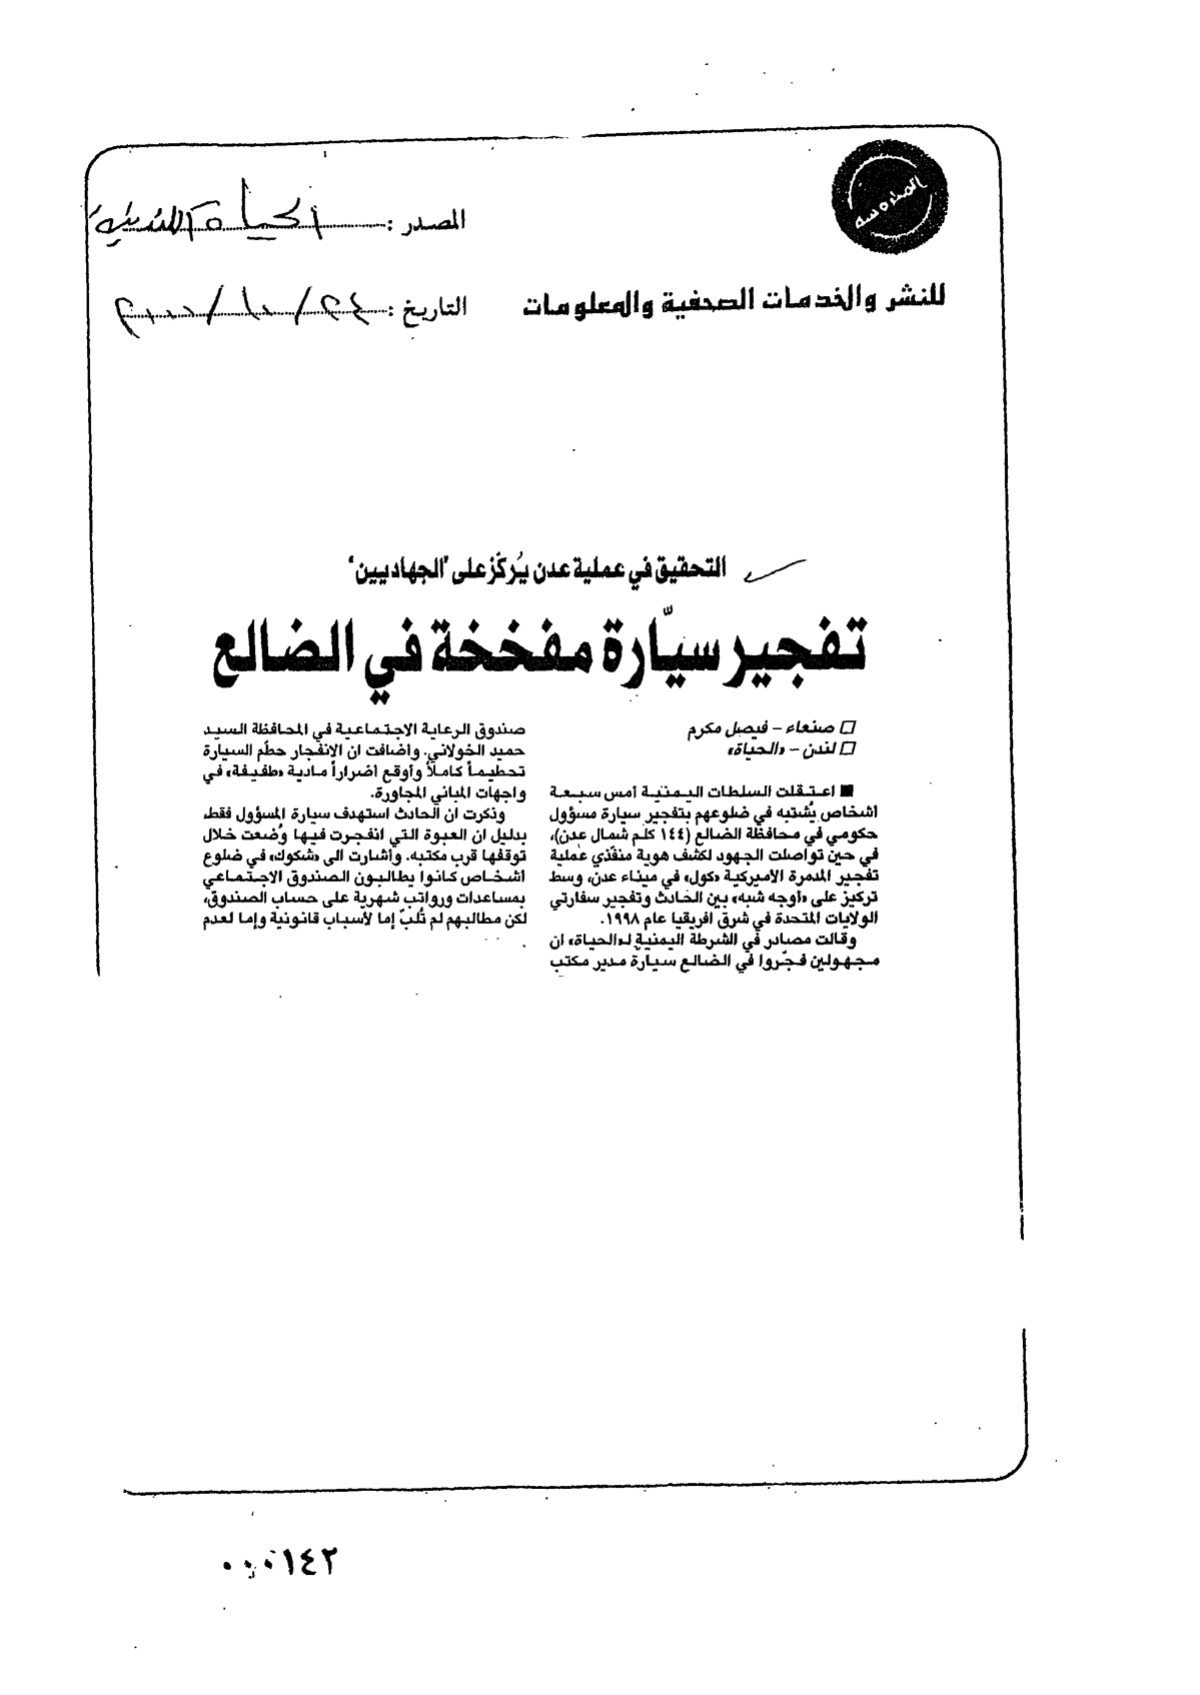 المحروسة
المصدر : الحياة اللندنية
للنشر والخدمات الصحفية والمعلومات
التاريخ : ٢٤ / ١٠ / ٢٠٠٠
التحقيق في عملية عدن يُركّز على "الجهاديين"
تفجير سيّارة مفخخة في الضالع
□ صنعاء – فيصل مكرم
□ لندن – «الحياة»
■ اعتقلت السلطات اليمنية أمس سبعة
اشخاص يُشتبه في ضلوعهم بتفجير سيارة مسؤول
حكومي في محافظة الضالع (١٤٤ كلم شمال عدن)،
في حين تواصلت الجهود لكشف هوية منفّذي عملية
تفجير المدمرة الاميركية «كول» في ميناء عدن، وسط
تركيز على «أوجه شبه» بين الحادث وتفجير سفارتي
الولايات المتحدة في شرق افريقيا عام ١٩٩٨.
وقالت مصادر في الشرطة اليمنية لـ«الحياة» ان
مجهولين فجّروا في الضالع سيارة مدير مكتب
صندوق الرعاية الاجتماعية في المحافظة السيد
حميد الخولاني. واضافت ان الانفجار حطّم السيارة
تحطيماً كاملاً وأوقع اضراراً مادية «طفيفة» في
واجهات المباني المجاورة.
وذكرت ان الحادث استهدف سيارة المسؤول فقط،
بدليل ان العبوة التي انفجرت فيها وُضعت خلال
توقفها قرب مكتبه. واشارت الى «شكوك» في ضلوع
اشخاص كانوا يطالبون الصندوق الاجتماعي
بمساعدات ورواتب شهرية على حساب الصندوق،
لكن مطالبهم لم تُلبّ إما لأسباب قانونية وإما لعدم
٠٠٠١٤٢